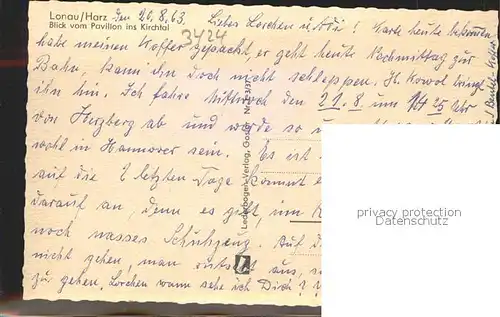 Lonau/Harz den 26.8.63.
Blick vom Pavillon ins Kirchtal
3424
Liebes Lorchen u. Adi! Karte heute bekommen
habe meinen Koffer gepackt, er geht heute Nachmittag zur
Bahn, kann ihn doch nicht schleppen. H. Kowol bringt
ihn hin. Ich fahre Mittwoch den 28.8 um 14 25 Uhr
von Herzberg ab und werde so u
wohl in Hannover sein. Es ist
auf die 2 letzten Tage kommt e
darauf an, denn es gießt, um
noch nasses Schuhzeug. Auf
nicht gehen, man rutscht aus, s
zu gehen. Lorchen wann sehe ich Dich?
Lederbogen-Verlag, Goslar
privacy protection
Datenschutz